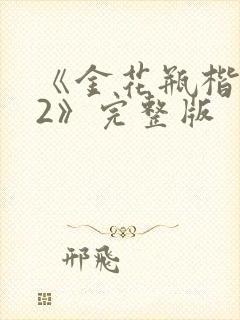 《金花瓶楷
2》完整版
邢飛